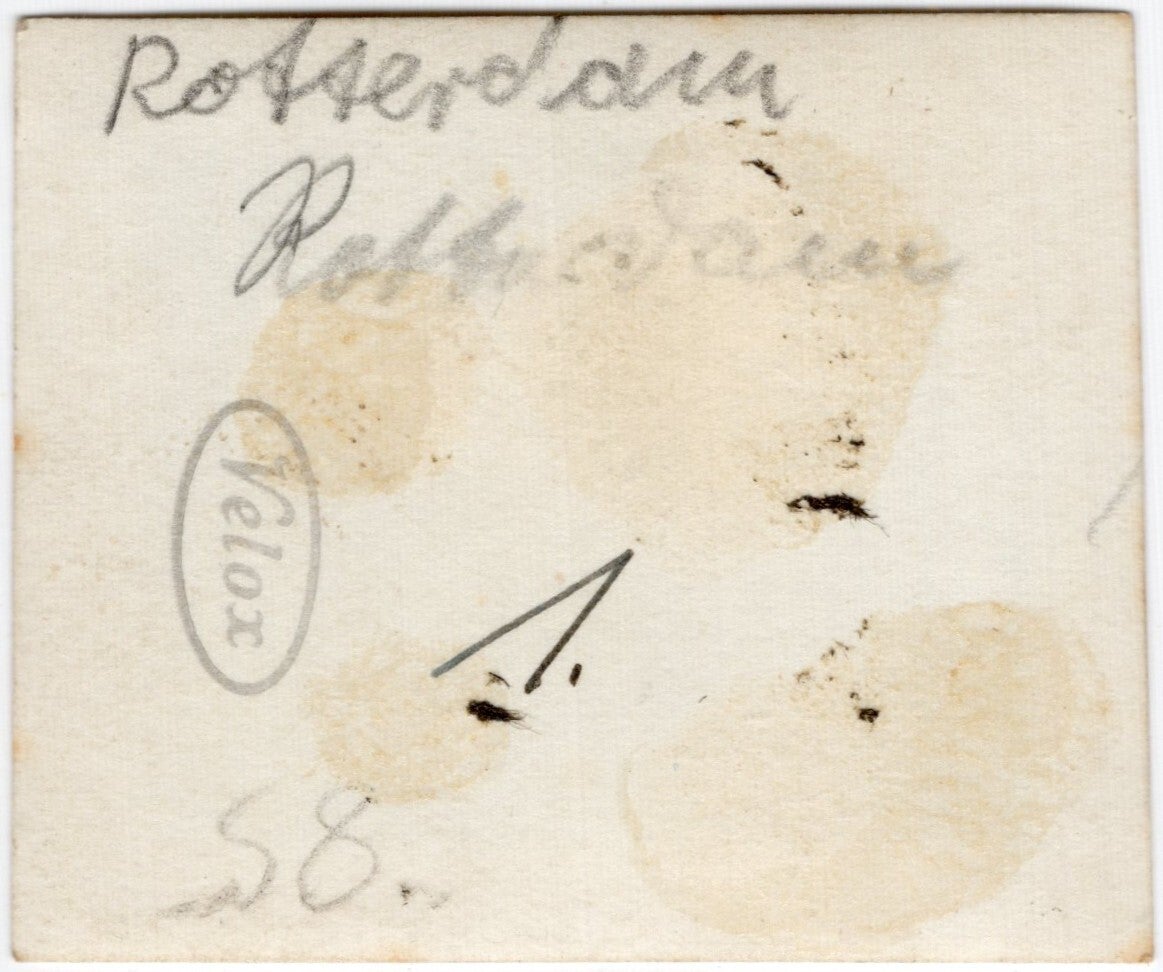 Rotterdam
Rotterdam
Velox
1.
S8.